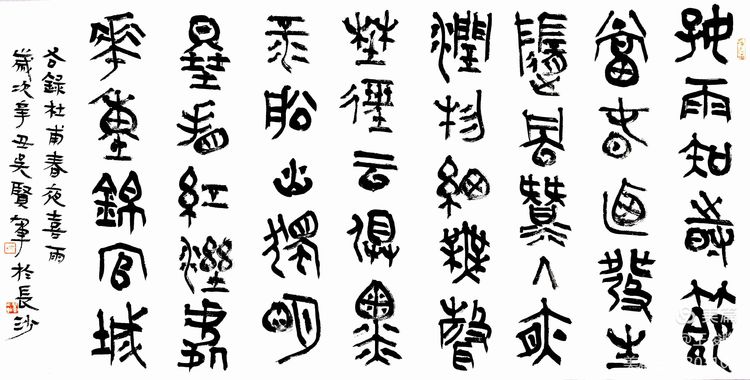 好雨知時節
當春迺發生
隨風潛入夜
潤物細無聲
埜徑云俱黑
江船火獨明
曉看紅濕處
花重錦官城
右錄杜甫春夜喜雨
歲次辛丑吳賢軍於長沙
美篇